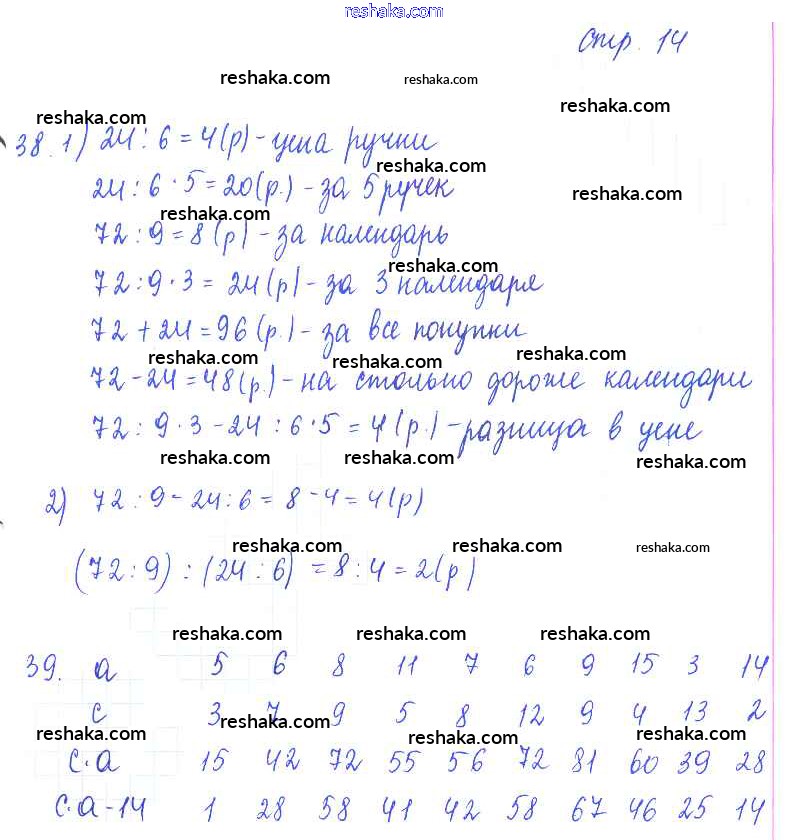 reshaka.com
стр. 14
reshaka.com reshaka.com
reshaka.com
reshaka.com
38. 1) 24 : 6 = 4(р) - цена ручки
reshaka.com
24 : 6 · 5 = 20(р.) - за 5 ручек
reshaka.com
reshaka.com
72 : 9 = 8 (р) - за календарь
reshaka.com
72 : 9 · 3 = 24 (р) - за 3 календаря
72 + 24 = 96 (р.) - за все покупки
reshaka.com reshaka.com reshaka.com
72 - 24 = 48 (р.) - на столько дороже календари
72 : 9 · 3 - 24 : 6 · 5 = 4 (р.) - разница в цене
reshaka.com reshaka.com reshaka.com
2) 72 : 9 - 24 : 6 = 8 - 4 = 4 (р)
reshaka.com reshaka.com reshaka.com
(72 : 9) : (24 : 6) = 8 : 4 = 2 (р)
reshaka.com reshaka.com reshaka.com
39. а 5 6 8 11 7 6 9 15 3 14
с 3 7 9 5 8 12 9 4 13 2
reshaka.com reshaka.com reshaka.com reshaka.com
с·а 15 42 72 55 56 72 81 60 39 28
с·а - 14 1 28 58 41 42 58 67 46 25 14